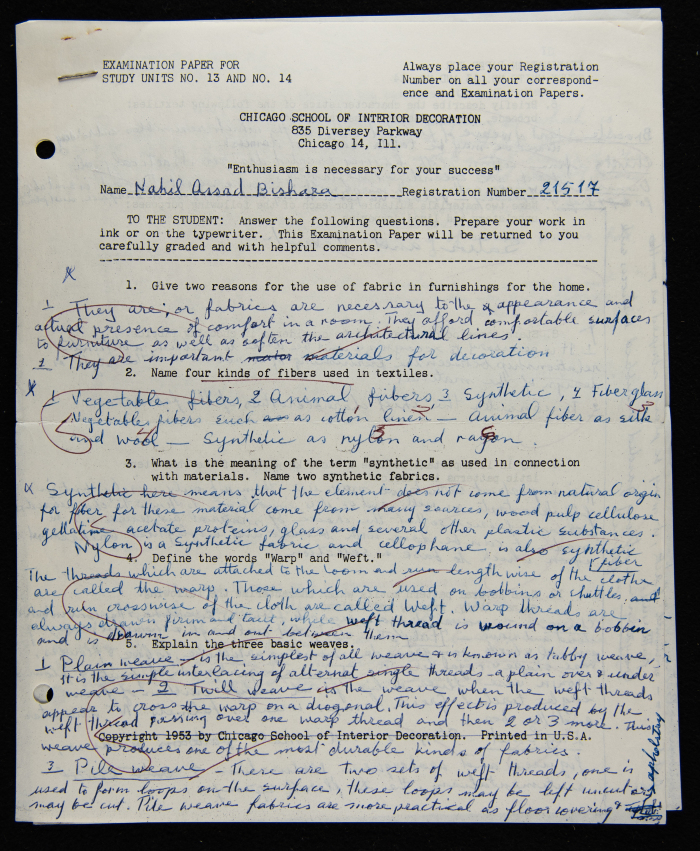 EXAMINATION PAPER FOR
STUDY UNITS NO. 13 AND NO. 14
Always place your Registration
Number on all your correspond-
ence and Examination Papers.
CHICAGO SCHOOL OF INTERIOR DECORATION
835 Diversey Parkway
Chicago 14, Ill.
"Enthusiasm is necessary for your success"
Name Nabil Assad Bishara Registration Number 21517
TO THE STUDENT: Answer the following questions. Prepare your work in
ink or on the typewriter. This Examination Paper will be returned to you
carefully graded and with helpful comments.
1. Give two reasons for the use of fabric in furnishings for the home.
1 They are, or fabrics are necessary to the appearance and
actual presence of comfort in a room. They afford comfortable surfaces
to furniture as well as soften the architectural lines.
2 They are important materials for decoration
2. Name four kinds of fibers used in textiles.
1 Vegetable fibers, 2 Animal fibers 3 Synthetic, 4 Fiberglass
Vegetable fibers such as cotton linen — animal fiber as silk
and wool — Synthetic as nylon and rayon.
3. What is the meaning of the term "synthetic" as used in connection
with materials. Name two synthetic fabrics.
Synthetic here means that the element does not come from natural origin
for fiber for these material come from many sources, wood pulp cellulose
gellatine acetate proteins, glass and several other plastic substances.
Nylon is a Synthetic fabric and cellophane is also synthetic
fiber
4. Define the words "Warp" and "Weft."
The threads which are attached to the loom and run lengthwise of the cloth
are called the warp. Those which are used on bobbins or shuttles and
and run crosswise of the cloth are called Weft. Warp threads are
always drawn firm and taut, while weft thread is wound on a bobbin
and is drawn in and out between them
5. Explain the three basic weaves.
1 Plain weave — is the simplest of all weave & is known as tabby weave,
it is the simple interlacing of alternat single threads - a plain over & under
weave — 2 Twill weave is the weave when the weft threads
appear to cross the warp on a diagonal. This effect is produced by the
weft thread passing over one warp thread and then 2 or 3 more. This
Copyright 1953 by Chicago School of Interior Decoration. Printed in U.S.A.
weave produces one of the most durable kinds of fabrics.
3 Pile weave — There are two sets of weft threads, one is
used to form loops on the surface, these loops may be left uncut or
may be cut. Pile weave fabrics are more practical as floor covering &
upholstery